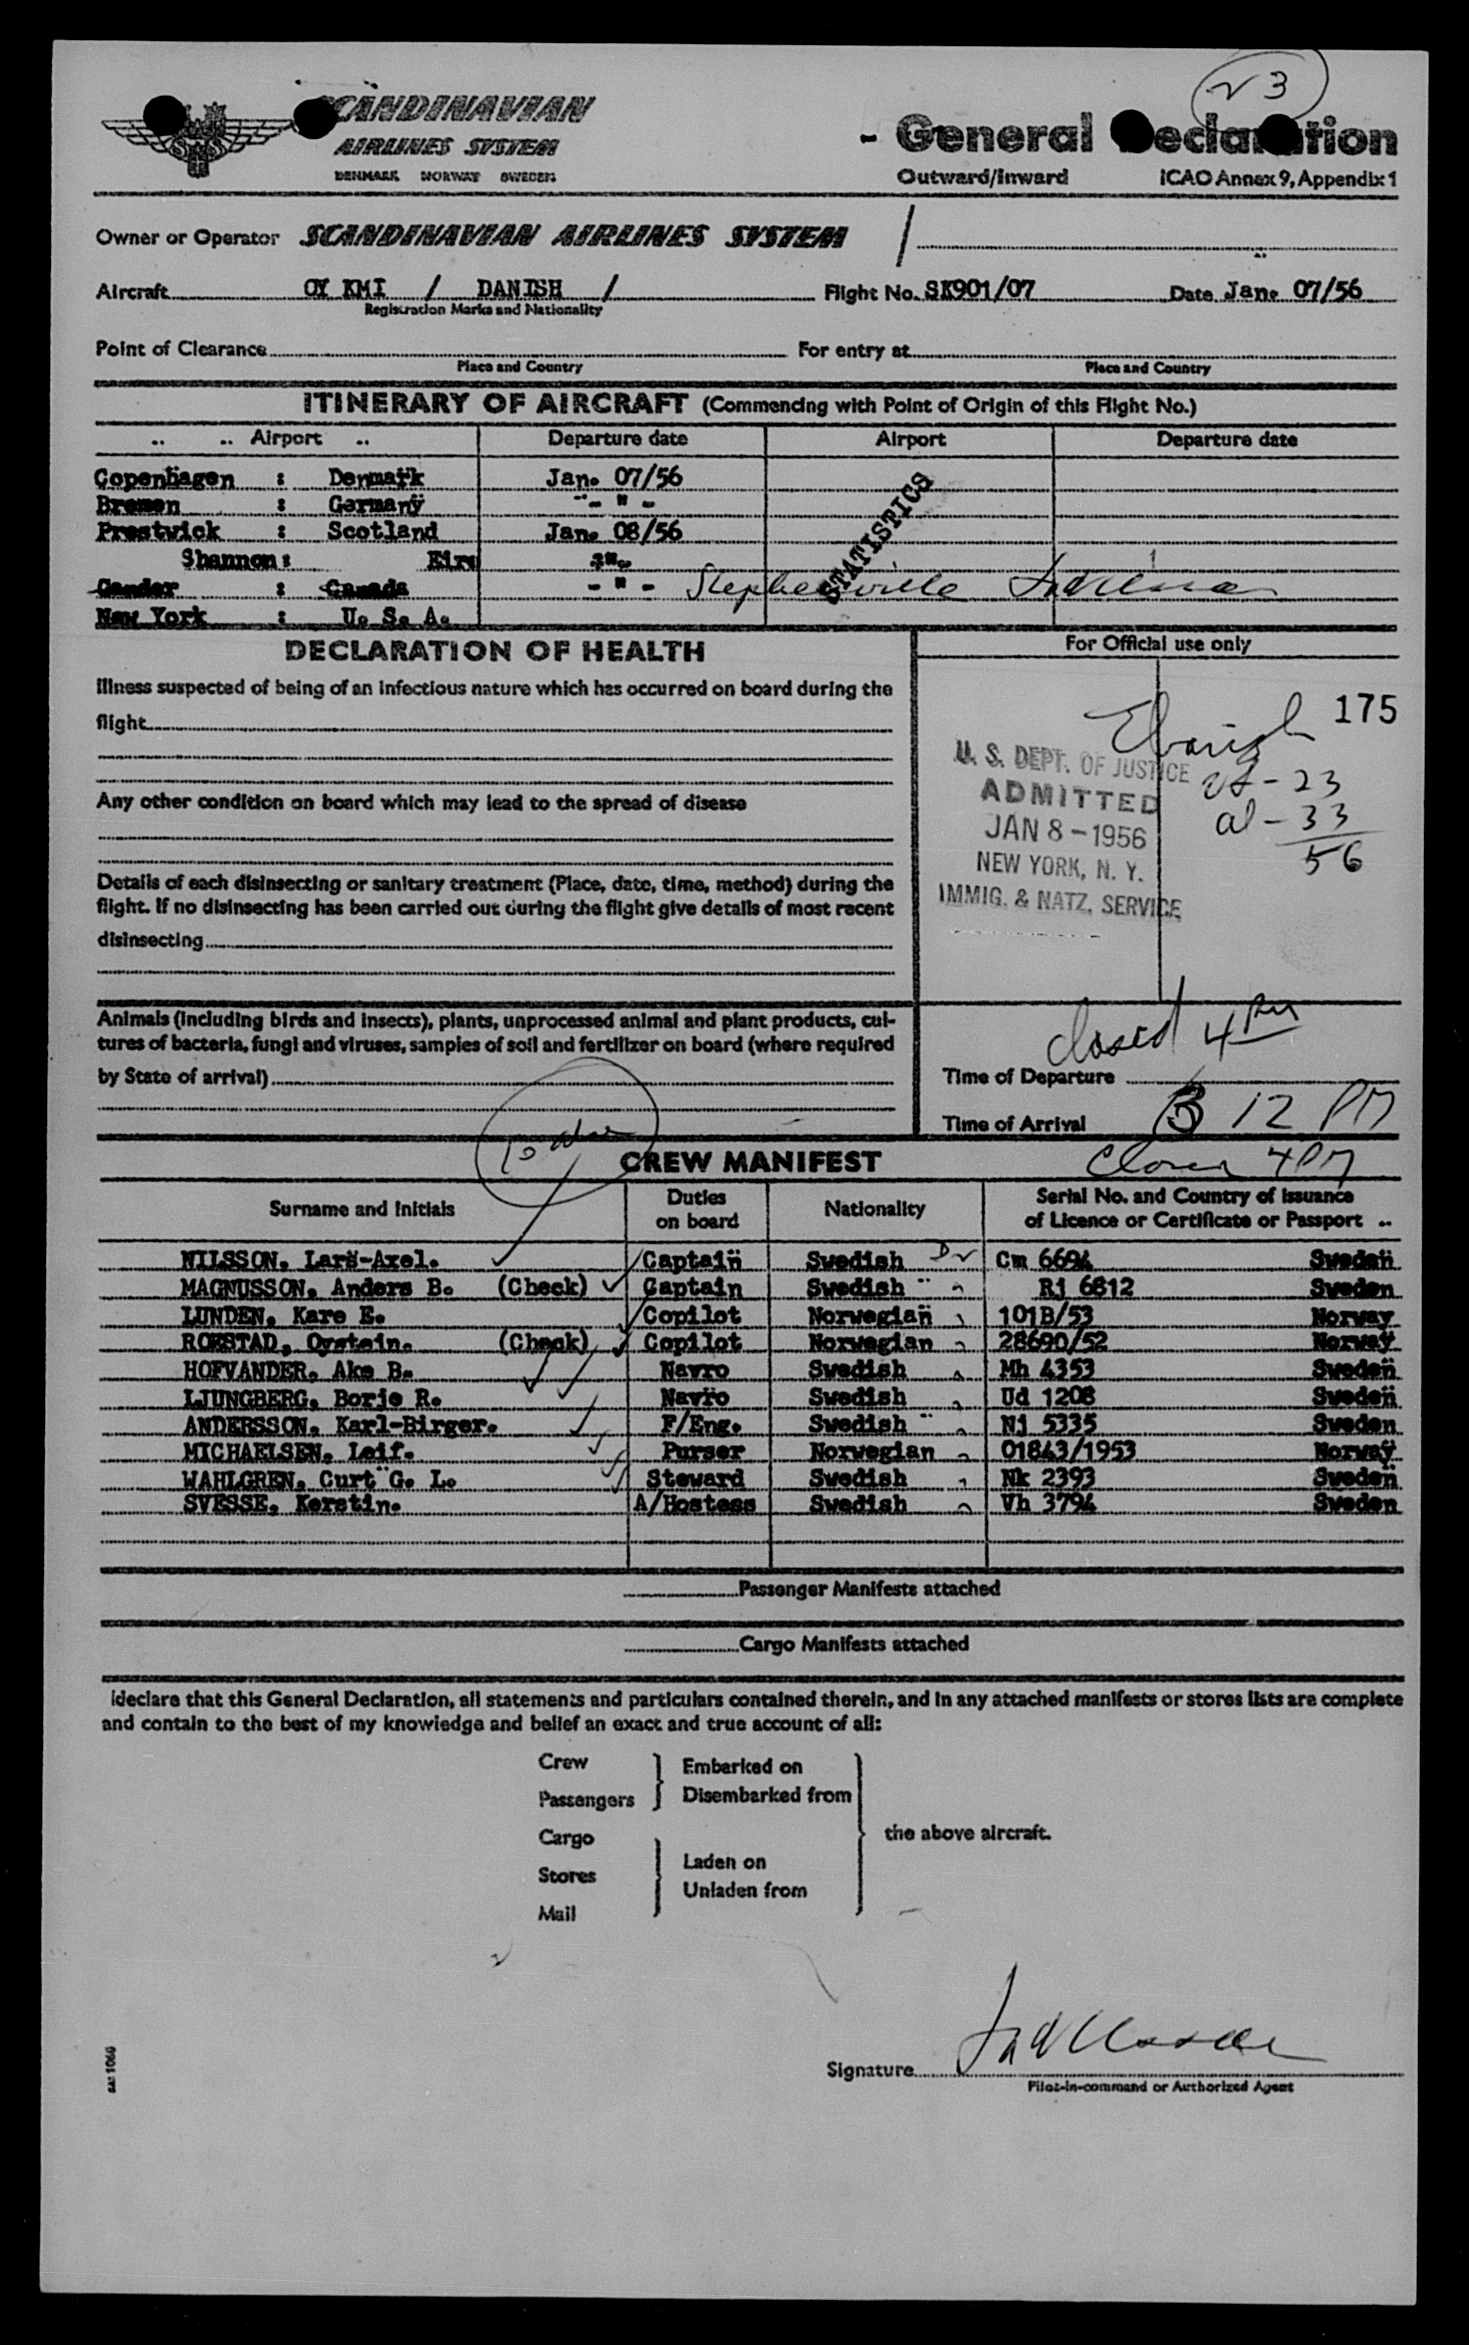 23
SCANDINAVIAN
AIRLINES SYSTEM
DENMARK NORWAY SWEDEN
- General Declaration
Outward/Inward ICAO Annex 9, Appendix 1
Owner or Operator SCANDINAVIAN AIRLINES SYSTEM /
Aircraft OY KMI / DANISH / Flight No. SK901/07 Date Jan. 07/56
Registration Marks and Nationality
Point of Clearance For entry at
Place and Country Place and Country
ITINERARY OF AIRCRAFT (Commencing with Point of Origin of this Flight No.)
Airport Departure date Airport Departure date
Copenhagen : Denmark Jan. 07/56
Bremen : Germany - " -
Prestwick : Scotland Jan. 08/56
Shannon: Eire -"-
Gander : Canada - " - Stephenville
New York : U. S. A.
STATISTICS
DECLARATION OF HEALTH
Illness suspected of being of an infectious nature which has occurred on board during the
flight
Any other condition on board which may lead to the spread of disease
Details of each disinsecting or sanitary treatment (Place, date, time, method) during the
flight. If no disinsecting has been carried out during the flight give details of most recent
disinsecting
Animals (including birds and insects), plants, unprocessed animal and plant products, cul-
tures of bacteria, fungi and viruses, samples of soil and fertilizer on board (where required
by State of arrival)
For Official use only
175
U. S. DEPT. OF JUSTICE
ADMITTED
JAN 8 - 1956
NEW YORK, N. Y.
IMMIG. & NATZ. SERVICE
us - 23
al - 33
56
closed 4 PM
Time of Departure
Time of Arrival 3 12 PM
Closed 4 PM
CREW MANIFEST
Surname and Initials Duties on board Nationality Serial No. and Country of Issuance of Licence or Certificate or Passport
NILSSON, Lars-Axel. Captain Swedish Cm 6694 Sweden
MAGNUSSON, Anders B. (Check) Captain Swedish Rj 6812 Sweden
LUNDEN, Kare E. Copilot Norwegian 101B/53 Norway
ROESTAD, Oystein. (Check) Copilot Norwegian 28690/52 Norway
HOFVANDER, Ake B. Navro Swedish Mh 4353 Sweden
LJUNGBERG, Borje R. Navro Swedish Ud 1208 Sweden
ANDERSSON, Karl-Birger. F/Eng. Swedish Nj 5335 Sweden
MICHAELSEN, Leif. Purser Norwegian 01843/1953 Norway
WAHLGREN, Curt G. L. Steward Swedish Nk 2393 Sweden
SVESSE, Kerstin. A/Hostess Swedish Vh 3794 Sweden
Passenger Manifests attached
Cargo Manifests attached
I declare that this General Declaration, all statements and particulars contained therein, and in any attached manifests or stores lists are complete
and contain to the best of my knowledge and belief an exact and true account of all:
Crew
Passengers
Embarked on
Disembarked from
Cargo
Stores
Mail
Laden on
Unladen from
the above aircraft.
Signature
Pilot-in-command or Authorized Agent